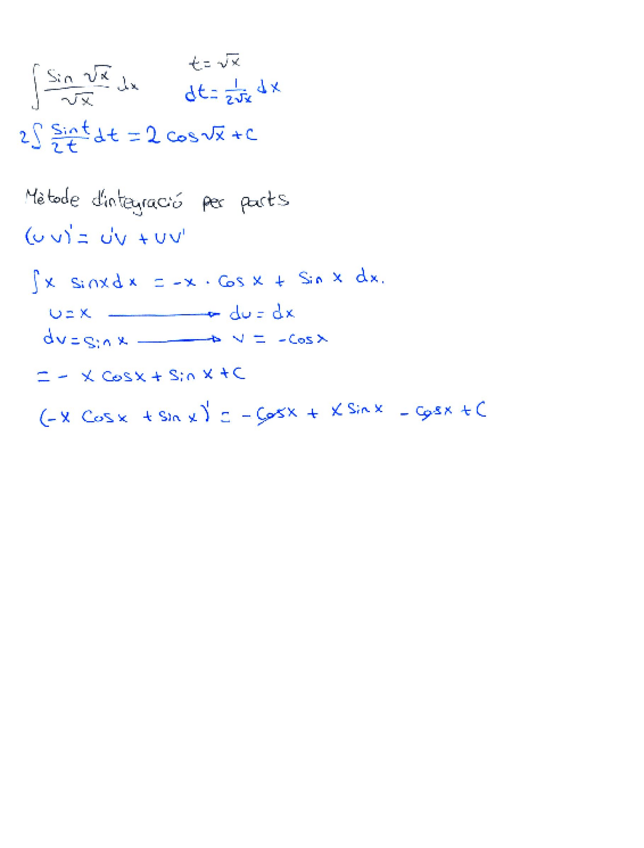 ∫ sin √x / √x dx    t = √x
dt = 1/(2√x) dx
2∫ sin t / 2t dt = 2 cos √x + C
Mètode d'integració per parts
(u v)' = u'v + uv'
∫ x sinx dx = -x · cos x + sin x dx.
u = x ⟶ du = dx
dv = sin x ⟶ v = -cosx
= - x cosx + sin x + C
(-x cosx + sin x)' = - cosx + x sin x - cosx + C